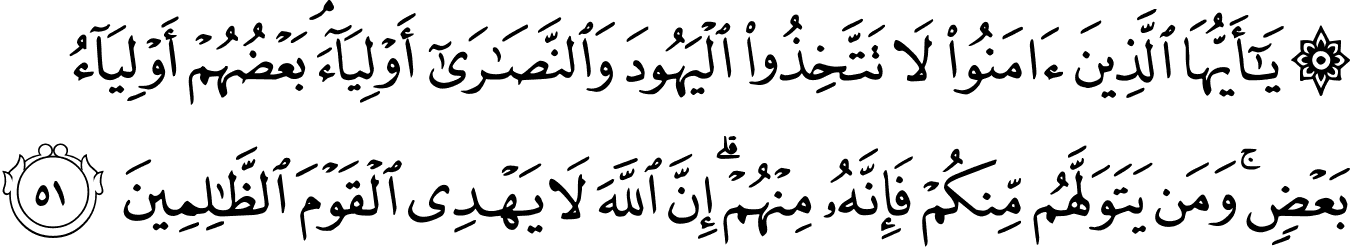 ۞ يَـٰٓأَيُّهَا ٱلَّذِينَ ءَامَنُوا۟ لَا تَتَّخِذُوا۟ ٱلْيَهُودَ وَٱلنَّصَـٰرَىٰٓ أَوْلِيَآءَ ۘ بَعْضُهُمْ أَوْلِيَآءُ
بَعْضٍ ۚ وَمَن يَتَوَلَّهُم مِّنكُمْ فَإِنَّهُۥ مِنْهُمْ ۗ إِنَّ ٱللَّهَ لَا يَهْدِى ٱلْقَوْمَ ٱلظَّـٰلِمِينَ ٥١